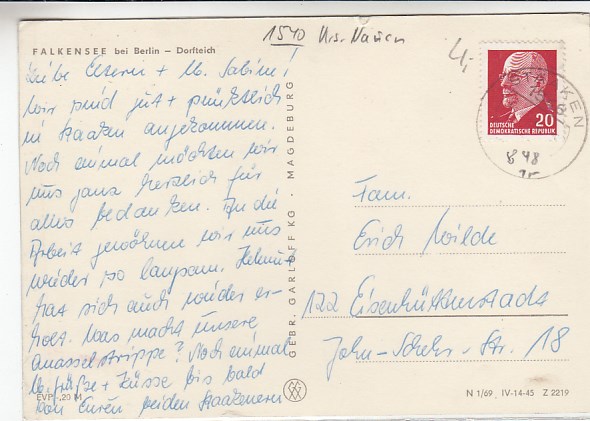 1540 Krs. Nauen
4,-
FALKENSEE bei Berlin – Dorfteich
Liebe Eltern + lb. Sabine!
Wir sind gut + pünktlich
in Staaken angekommen.
Noch einmal möchten wir
uns ganz herzlich für
alles bedanken. An die
Arbeit gewöhnen wir uns
wieder so langsam. Helmut
hat sich auch wieder er-
holt. Was macht unsere
Quasselstrippe? Noch einmal
lb. Grüße + Küsse bis bald
von Euren beiden Staakenern
EVP -,20 M
GEBR. GARLOFF KG · MAGDEBURG
20
DEUTSCHE
DEMOKRATISCHE REPUBLIK
848
Fam.
Erich Wilde
122 Eisenhüttenstadt
John-Schehr-Str. 18
N 1/69 IV-14-45 Z 2219